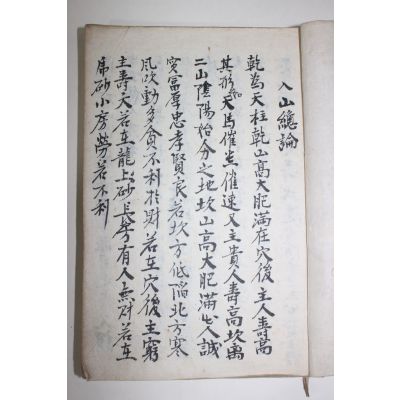 入山總論
乾為天柱乾山高大肥滿在穴後主人壽高
其形如天馬催官催速又主貴人壽高坎离
二山陰陽始分之地坎山高大肥滿出人誠
實富厚忠孝賢良若坎方低陷北方寒
風吹動多貪不利於財若在穴後主窮
主壽夭若在龍上砂長房有人無財若在
帛砂小房勞若不利